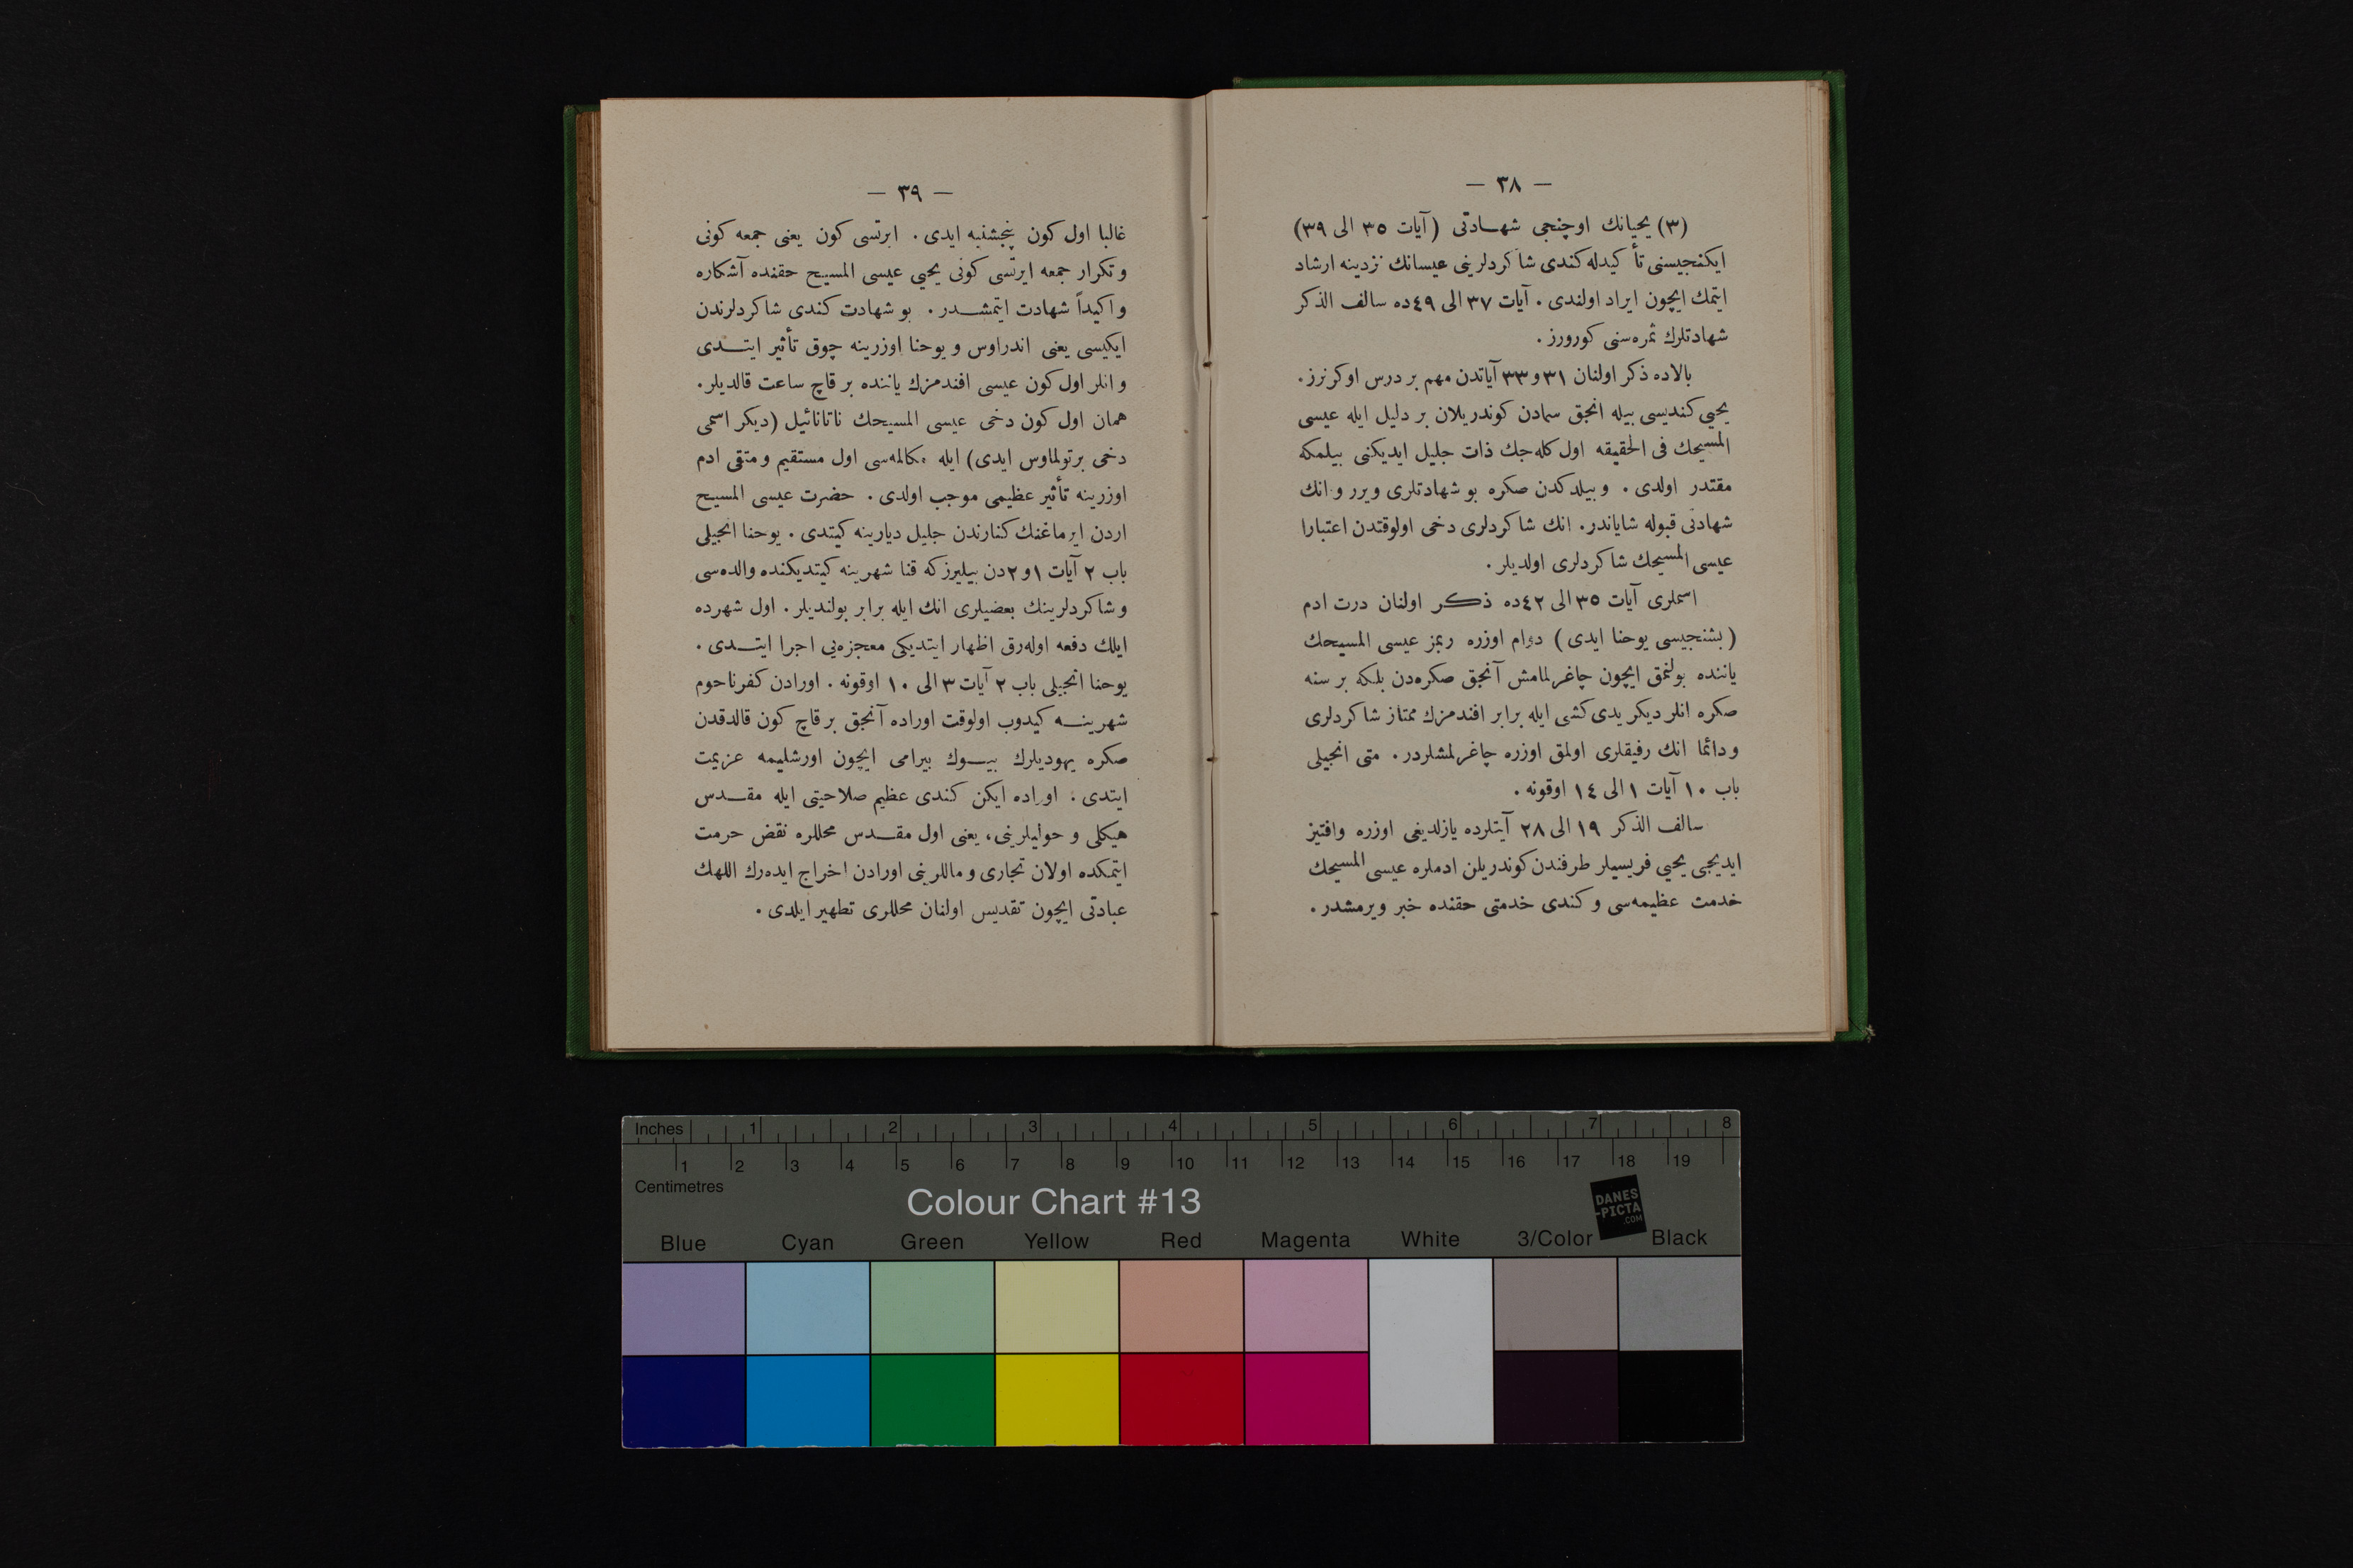 — ٣٨ —
(٣) يحيانك اوچنجى شهـــادتى (آيات ٣٥ الى ٣٩)
ايكنجيسنى تأكيدله كندى شاكردلرينى عيسانك نزدينه ارشاد
ايتمك ايچون ايراد اولندى . آيات ٣٧ الى ٤٩ده سالف الذكر
شهادتلرك ثمره‌سنى كورورز .
بالاده ذكر اولنان ٣١ و ٣٣ آياتدن مهم بر درس اوكرنرز .
يحيى كنديسى بيله انجق سمادن كوندريلان بر دليل ايله عيسى
المسيحك فى الحقيقه اول كله‌جك ذات جليل ايديكنى بيلمكه
مقتدر اولدى . و بيلدكدن صكره بو شهادتلرى ويرر و انك
شهادتى قبوله شاياندر. انك شاكردلرى دخى اولوقتدن اعتبارا
عيسى المسيحك شاكردلرى اولديلر .
اسملرى آيات ٣٥ الى ٤٢ده ذكـر اولنان درت ادم
( بشنجيسى يوحنا ايدى ) دوام اوزره ربمز عيسى المسيحك
ياننده بولنمق ايچون چاغرلمامش آنجق صكره‌دن بلكه بر سنه
صكره انلر ديكر يدى كشى ايله برابر افندمزك ممتاز شاكردلرى
و دائما انك رفيقلرى اولمق اوزره چاغرلمشلردر . متى انجيلى
باب ١٠ آيات ١ الى ١٤ اوقونه .
سالف الذكر ١٩ الى ٢٨ آيتلرده يازلديغى اوزره وافتيز
ايديجى يحيى فريسيلر طرفندن كوندريلن ادملره عيسى المسيحك
خدمت عظيمه‌سى و كندى خدمتى حقنده خبر ويرمشدر .
— ٣٩ —
غالبا اول كون پنجشنبه ايدى . ايرتسى كون يعنى جمعه كونى
و تكرار جمعه ايرتسى كونى يحيى عيسى المسيح حقنده آشكاره
و اكيداً شهادت ايتمشــدر . بو شهادت كندى شاكردلرندن
ايكيسى يعنى اندراوس و يوحنا اوزرينه چوق تأثير ايتــدى
و انلر اول كون عيسى افندمزك ياننده بر قاچ ساعت قالديلر.
همان اول كون دخى عيسى المسيحك ناتانائيل (ديكر اسمى
دخى برتولماوس ايدى) ايله مكالمه‌سى اول مستقيم و متقى ادم
اوزرينه تأثير عظيمى موجب اولدى . حضرت عيسى المسيح
اردن ايرماغنك كنارندن جليل ديارينه كيتدى . يوحنا انجيلى
باب ٢ آيات ١ و ٢دن بيليرزكه قنا شهرينه كيتديكنده والده‌سى
و شاكردلرينك بعضيلرى انك ايله برابر بولنديلر . اول شهرده
ايلك دفعه اوله‌رق اظهار ايتديكى معجزه‌يى اجرا ايتــدى .
يوحنا انجيلى باب ٢ آيات ٣ الى ١٠ اوقونه . اورادن كفرناحوم
شهرينــه كيدوب اولوقت اوراده آنجق بر قاچ كون قالدقدن
صكره يهوديلرك بيــوك بيرامى ايچون اورشليمه عزيمت
ايتدى . اوراده ايكن كندى عظيم صلاحيتى ايله مقــدس
هيكلى و حواليلرينى، يعنى اول مقــدس محللره نقض حرمت
ايتمكده اولان تجارى و ماللرينى اورادن اخراج ايده‌رك اللهك
عبادتى ايچون تقديس اولنان محللرى تطهير ايلدى .
Inches 1 2 3 4 5 6 7 8
1 2 3 4 5 6 7 8 9 10 11 12 13 14 15 16 17 18 19
Centimetres
Colour Chart #13
DANES
-PICTA
.COM
Blue Cyan Green Yellow Red Magenta White 3/Color Black